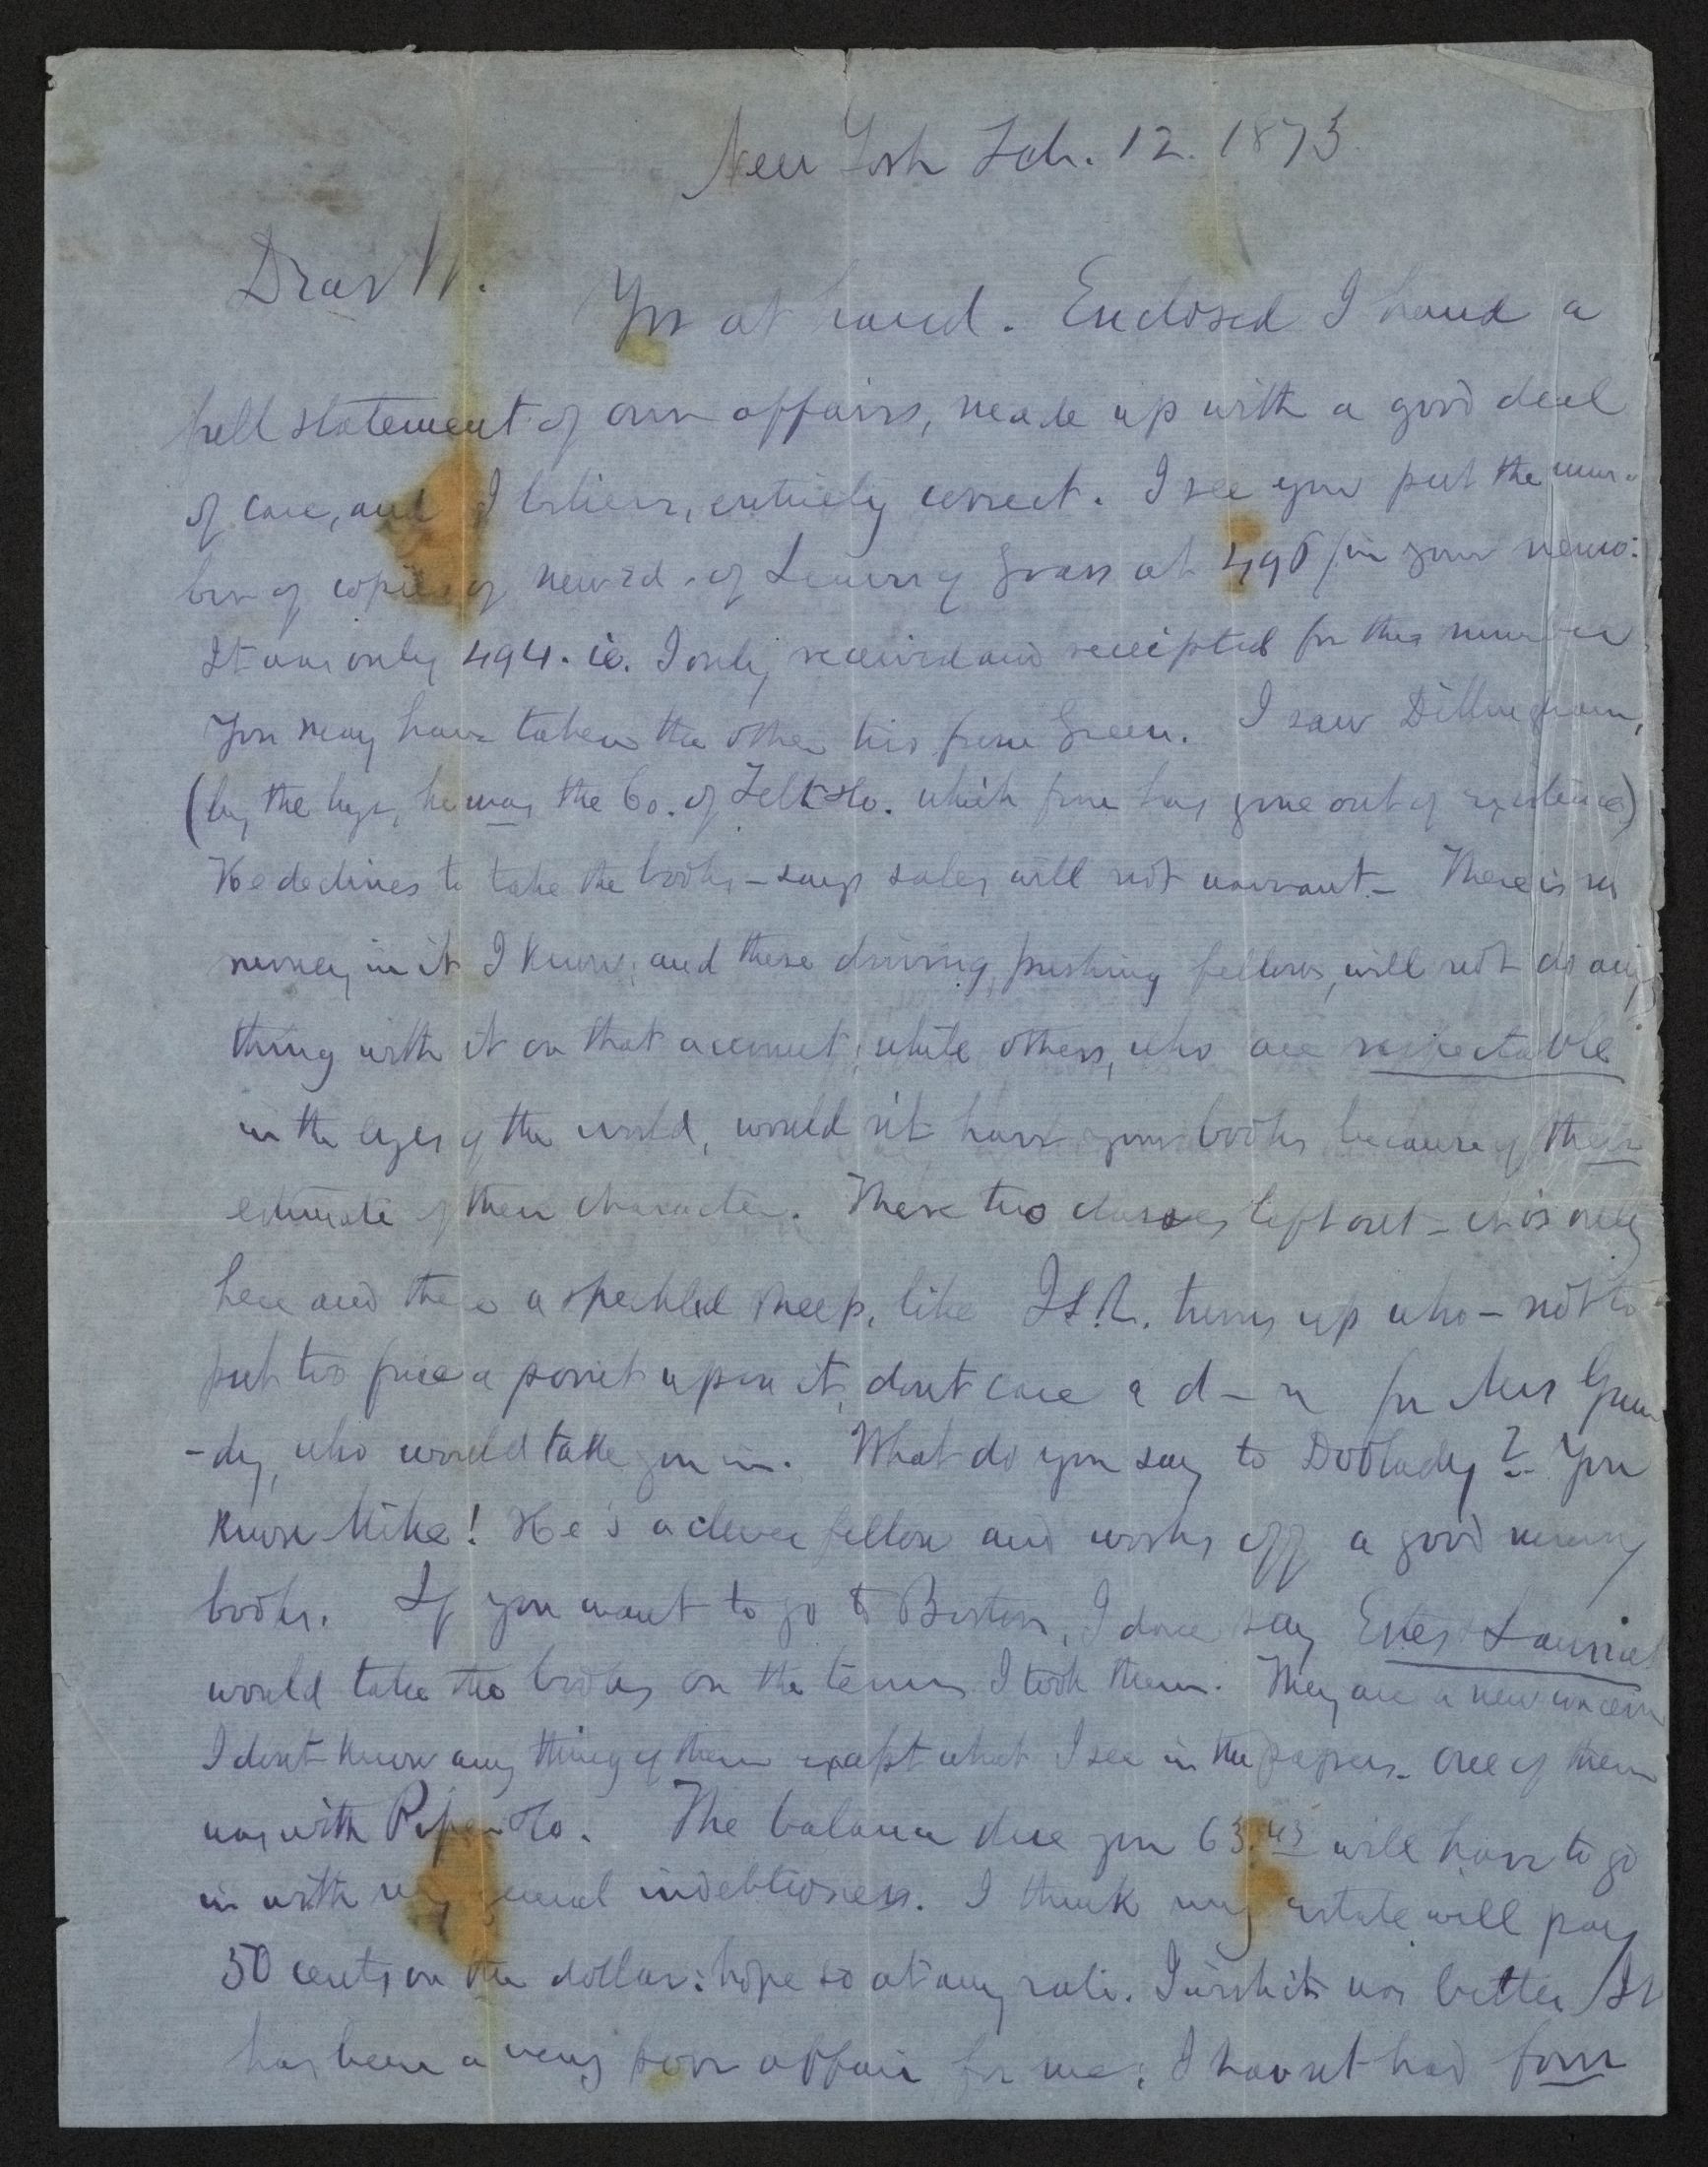 New York Feb. 12. 1873
Dear W.
Yrs at hand. Enclosed I hand a
full statement of our affairs, made up with a good deal
of care, and I believe, entirely correct. I see you put the num-
ber of copies of new ed. of Leaves of Grass at 496 / in your memo:
It was only 494. ie. I only received and receipted for this number
You may have taken the other two from Green. I saw Dillingham,
(by the bye, he was the Co. of Felt & Co. which firm has gone out of existence)
He declines to take the books – says sales will not warrant – There is no
money in it I know; and these driving, pushing fellows, will not do any
thing with it on that account; while others, who are respectable
in the eyes of the world, would n't have your books because of their
estimate of their character. These two classes left out – it is only
here and there a speckled sheep, like J.S.R. turns up who – not to
put too fine a point upon it, dont care a d – n for Mrs Grun
-dy, who would take you in. What do you say to Doolady? You
know Mike! He's a clever fellow and works off a good many
books. If you want to go to Boston, I dare say Estes & Lauriat
would take the books on the terms I took them. They are a new concern
I dont know any thing of them except what I see in the papers – One of them
was with Piper & Co. The balance due you 63.45 will have to go
in with my general indebtedness. I think my estate will pay
50 cents on the dollar: hope so at any rate. I wish it was better / It
has been a very poor affair for me; I have nt had four